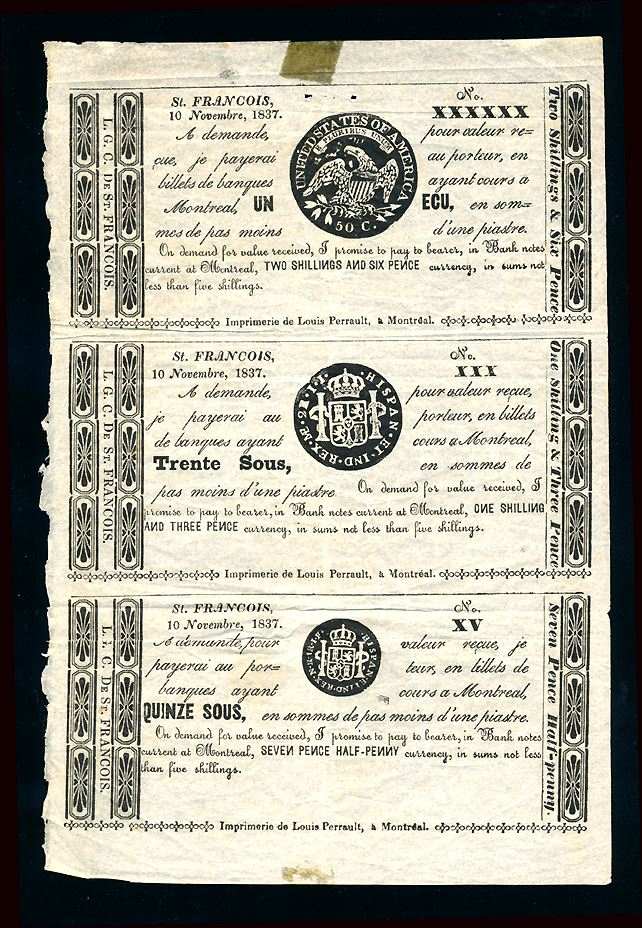 L. G. C. DE ST. FRANCOIS.
St. FRANCOIS,
10 Novembre, 1837.
No.
XXXXXX
A demande, pour valeur re=
çue, je payerai au porteur, en
billets de banques ayant cours a
Montreal, UN ECU, en som=
mes de pas moins d'une piastre.
UNITED STATES OF AMERICA
E PLURIBUS UNUM
50 C.
On demand for value received, I promise to pay to bearer, in Bank notes
current at Montreal, TWO SHILLINGS AND SIX PENCE currency, in sums not
less than five shillings.
Two Shillings & Six Pence
Imprimerie de Louis Perrault, à Montréal.
L. G. C. DE ST. FRANCOIS.
St. FRANCOIS,
10 Novembre, 1837.
No.
XXX
A demande, pour valeur reçue,
je payerai au porteur, en billets
de banques ayant cours a Montreal,
Trente Sous, en sommes de
pas moins d'une piastre
HISPAN·ET·IND·REX·
On demand for value received, I
promise to pay to bearer, in Bank notes current at Montreal, ONE SHILLING
AND THREE PENCE currency, in sums not less than five shillings.
One Shilling & Three Pence
Imprimerie de Louis Perrault, à Montréal.
L. G. C. DE ST. FRANCOIS.
St. FRANCOIS,
10 Novembre, 1837.
No.
XV
A demande, pour valeur reçue, je
payerai au por= teur, en billets de
banques ayant cours a Montreal,
QUINZE SOUS, en sommes de pas moins d'une piastre.
On demand for value received, I promise to pay to bearer, in Bank notes
current at Montreal, SEVEN PENCE HALF-PENNY currency, in sums not less
than five shillings.
Seven Pence Half-penny.
Imprimerie de Louis Perrault, à Montréal.